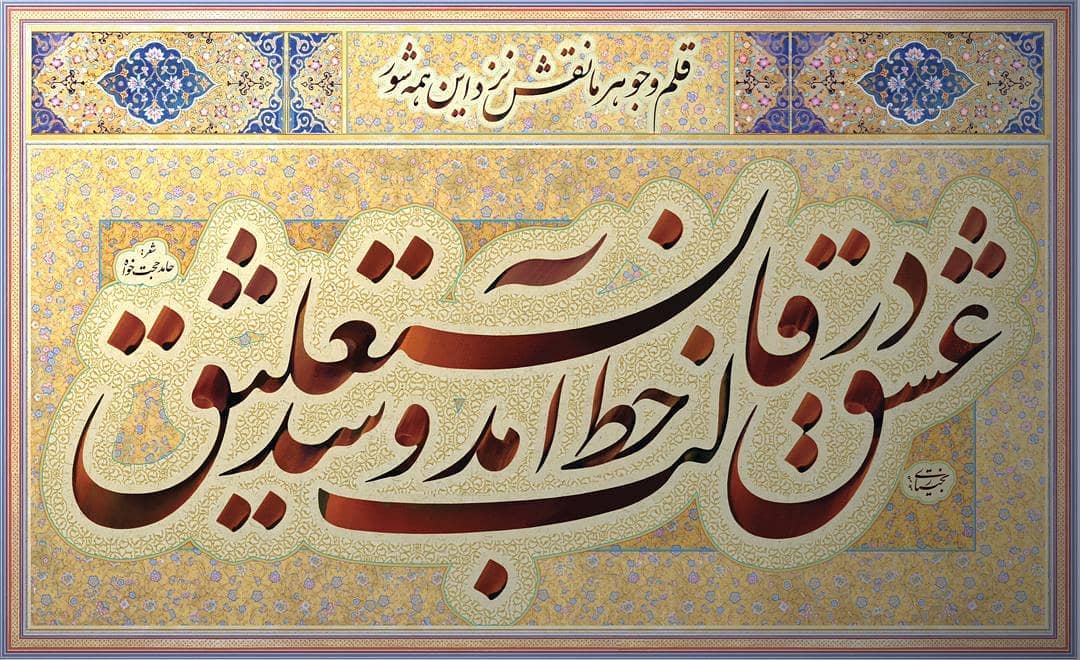 قلم و جوهر ما نقش نزد این همه شور
عشق در قالب خط آمد و شد نستعلیق
شعر:
حامد حجت خواه